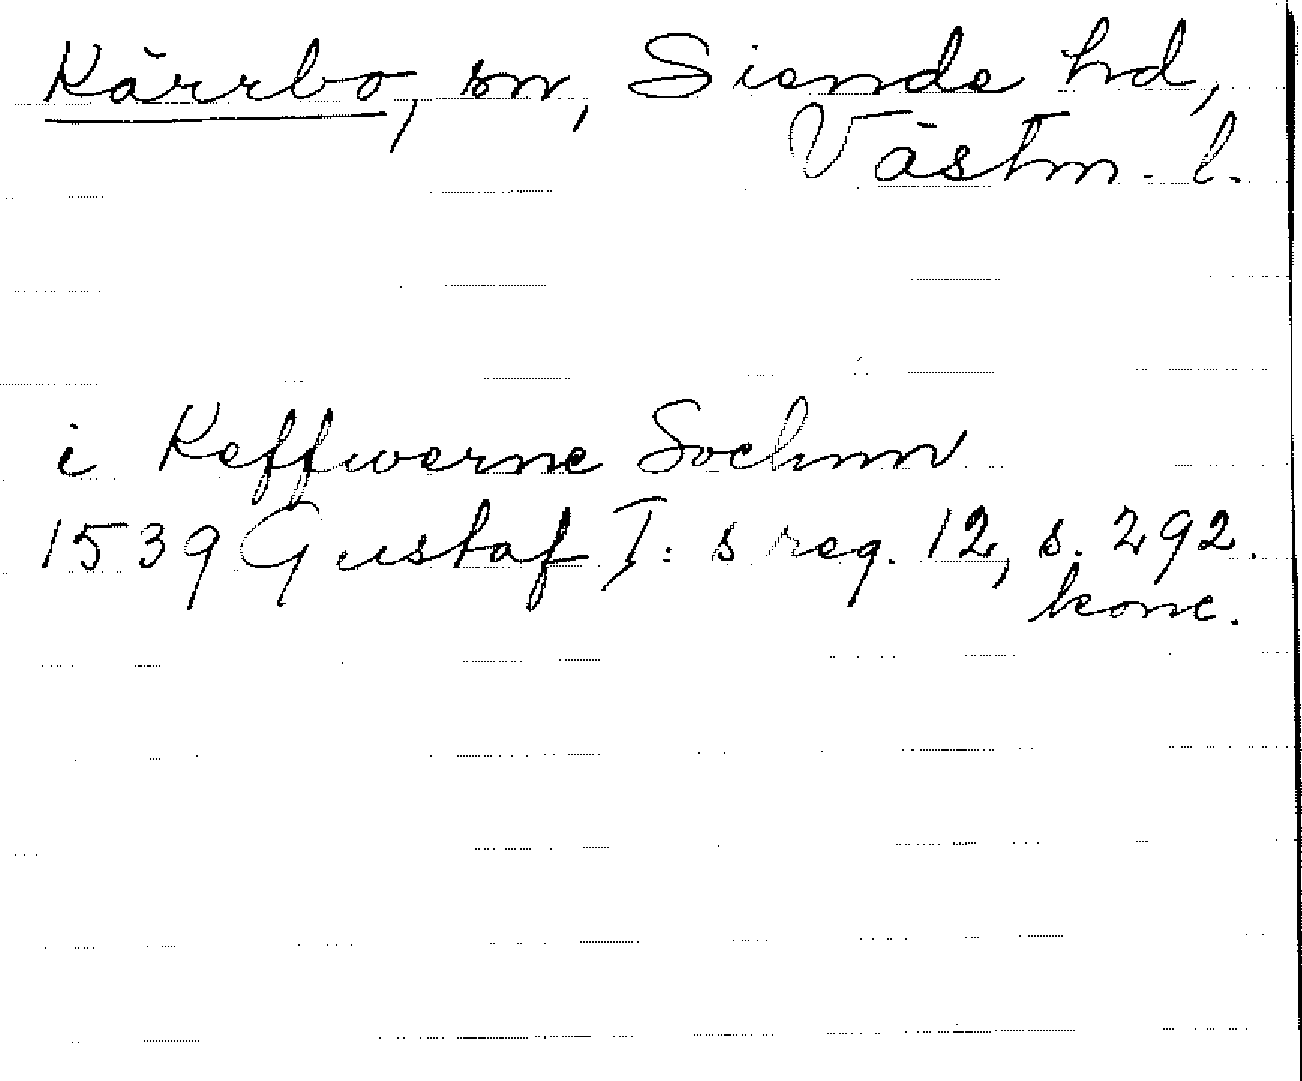 Kärrbo, sn, Siende hd,
Västm. l.
i Keffwerne Sochnn
1539 Gustaf I: s reg. 12, s. 292.
konc.